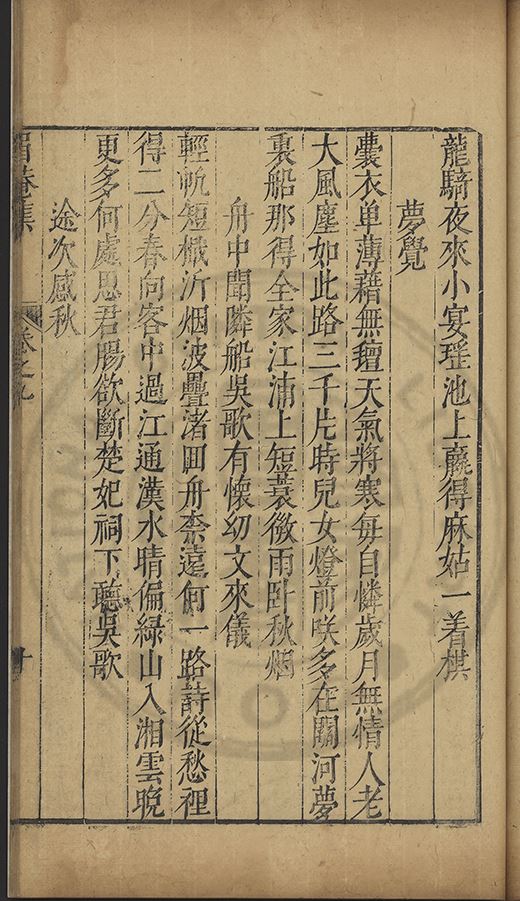 龍騎夜來小宴瑤池上贏得麻姑一着棋
夢覺
囊衣单薄藉無氊天氣將寒每自憐歲月無情人老
大風塵如此路三千片時兒女燈前咲多在關河夢
裏船那得全家江浦上短蓑微雨卧秋烟
舟中聞隣船吳歌有懷幼文來儀
輕帆短檝泝烟波疊渚囬舟柰遠何一路詩從愁裡
得二分春向客中過江通漢水晴偏綠山入湘雲晚
更多何處思君腸欲斷楚妃祠下聽吳歌
途次感秋
眉菴集 卷之九 十